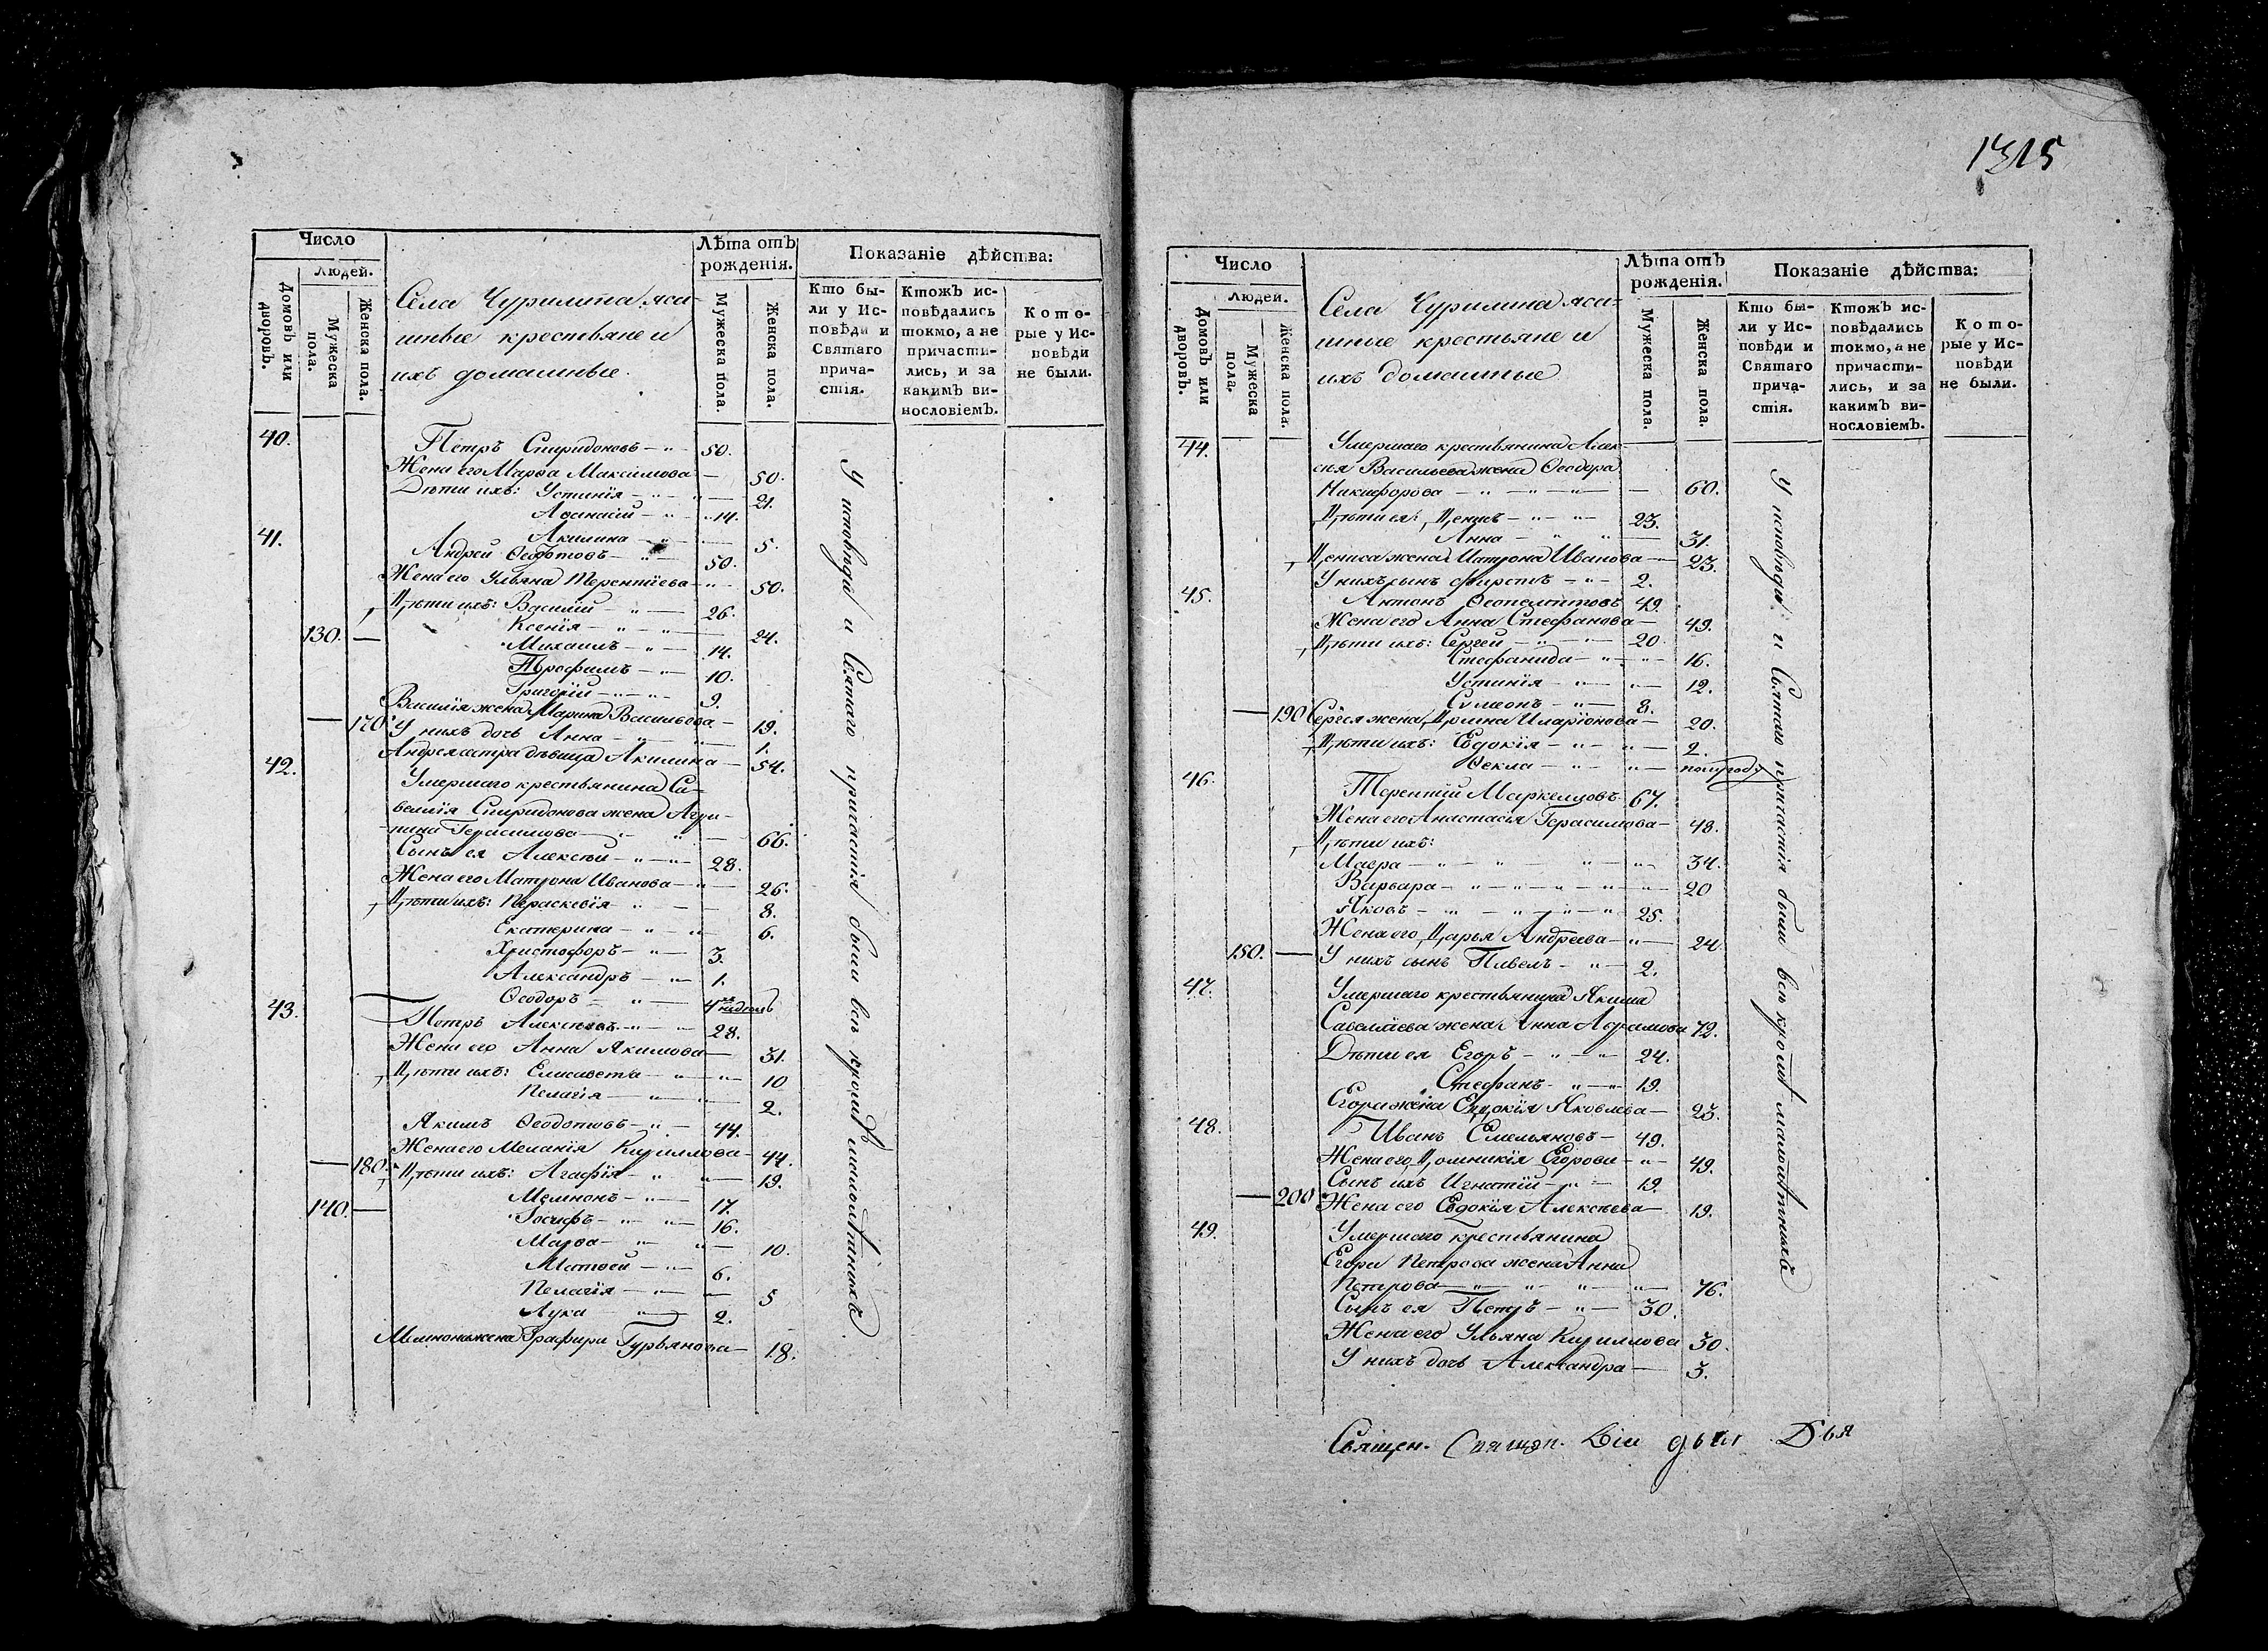 1315
Число
Людей.
Домовъ или дворовъ.
Мужеска пола.
Женска пола.
Села Чурилина яса-
шные крестьяне и
ихъ домашные.
Лѣта отъ рожденія.
Мужеска пола.
Женска пола.
Показаніе дѣйства:
Кто бы-
ли у Ис-
повѣди и
Святаго
прича-
стія.
Ктожъ ис-
повѣдались
токмо, а не
причасти-
лись, и за
какимъ ви-
нословіемъ.
Кото-
рые у Ис-
повѣди
не были.
40. Петръ Спиридоновъ 50.
Жена его Марѳа Максимова 50.
Дѣти ихъ: Устинія 21.
Аѳанасій 14.
Акилина 5.
41. Андрей Ѳедотовъ 50.
Жена его Ульяна Терентіева 50.
Дѣти ихъ: Василій 26.
Ксенія 24.
130. Михаилъ 14.
Трофимъ 10.
Григорій 9.
Василія жена Марина Васильева 19.
170. У нихъ дочь Анна 1.
Андрея сестра дѣвица Акилина 54.
42. Умершаго крестьянина Са-
велія Спиридонова жена Агри-
пина Герасимова 66.
Сынъ ея Алексѣй 28.
Жена его Матрона Иванова 26.
Дѣти ихъ: Параскевія 8.
Екатерина 6.
Христофоръ 3.
Александръ 1.
Ѳеодоръ 4 недель
43. Петръ Алексѣевъ 28.
Жена его Анна Якимова 31.
Дѣти ихъ: Елисавета 10
Пелагія 2.
Якимъ Ѳеодотовъ 44.
Жена его Меланія Кириллова 44.
180. Дѣти ихъ: Агафія 19.
Мемнонъ 17.
140. Іосифъ 16.
Марѳа 10.
Матѳей 6.
Пелагія 5
Лука 2.
Мемнона жена Графира Гурьянова 18.
У исповѣди и Святаго причастія были всѣ кромѣ малолѣтныхъ
Число
Людей.
Домовъ или дворовъ.
Мужеска пола.
Женска пола.
Села Чурилина яса-
шные крестьяне и
ихъ домашные
Лѣта отъ рожденія.
Мужеска пола.
Женска пола.
Показаніе дѣйства:
Кто бы-
ли у Ис-
повѣди и
Святаго
прича-
стія.
Ктожъ ис-
повѣдались
токмо, а не
причасти-
лись, и за
какимъ ви-
нословіемъ.
Кото-
рые у Ис-
повѣди
не были.
44. Умершаго крестьянина Алек-
сѣя Васильева жена Ѳеодора
Никифорова 60.
Дѣти ея: Денисъ 23.
Анна 31.
Дениса жена Матрона Иванова 23.
У нихъ сынъ Фирстъ 2.
45. Антонъ Ѳеопемптовъ 49.
Жена его Анна Стефанова 49.
Дѣти ихъ: Сергей 20.
Стефанида 16.
Устинія 12.
Сѵмеонъ 8.
190 Сергея жена Домна Иларіонова 20.
Дѣти ихъ: Евдокія 2.
Ѳекла полугоду
46. Терентій Маркелловъ 67.
Жена его Анастасія Герасимова 48.
Дѣти ихъ:
Мавра 34.
Варвара 20
Яковъ 25.
Жена его Дарья Андреева 24
150. У нихъ сынъ Павелъ 2.
47. Умершаго крестьянина Якима
Савельева жена Анна Абрамова 72.
Дѣти ея Егоръ 24.
Стефанъ 19.
Егора жена Евдокія Яковлева 23.
48. Иванъ Емельяновъ 49.
Жена его Домникія Егорова 49.
Сынъ ихъ Игнатій 19.
200 Жена его Евдокія Алексѣева 19.
49. Умершаго крестьянина
Егора Петрова жена Анна
Петрова 76.
Сынъ ея Петръ 30.
Жена его Ульяна Кириллова 30.
У нихъ дочь Александра 3.
У исповѣди и Святаго причастія были всѣ кромѣ малолѣтныхъ
Священ.